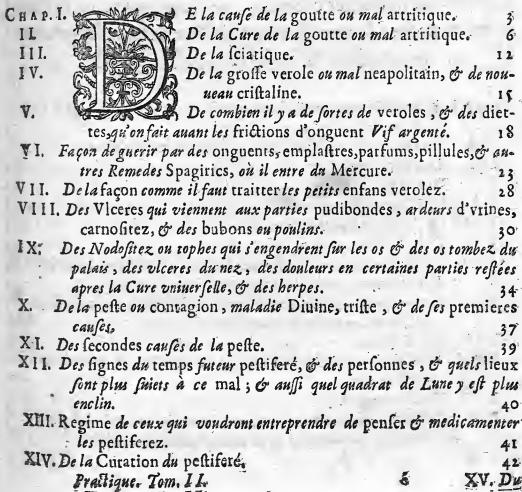 CHAP. I. DE la cauſe de la goutte ou mal artritique. 3
II. De la Cure de la goutte ou mal artritique. 6
III. De la ſciatique. 12
IV. De la groſſe verole ou mal neapolitain, & de nou-
ueau criſtaline. 15
V. De combien il y a de ſortes de veroles, & des diet-
tes, qu'on fait auant les frictions d'onguent Vif argenté. 18
VI. Façon de guerir par des onguents, emplaſtres, parfums, pillules, & au-
tres Remedes Spagirics, où il entre du Mercure. 23
VII. De la façon comme il faut traitter les petits enfans verolez. 28
VIII. Des Vlceres qui viennent aux parties pudibondes, ardeurs d'vrines,
carnoſitez, & des bubons ou poulins. 30
IX. Des Nodoſitez ou tophes qui s'engendrent ſur les os & des os tombez du
palais, des vlceres du nez, des douleurs en certaines parties reſtées
apres la Cure vniuerſelle, & des herpes. 34
X. De la peſte ou contagion, maladie Diuine, triſte, & de ſes premieres
cauſes. 37
XI. Des ſecondes cauſes de la peſte. 39
XII. Des ſignes du temps futeur peſtiferé, & des perſonnes, & quels lieux
ſont plus ſuiets à ce mal; & auſſi quel quadrat de Lune y eſt plus
enclin. 40
XIII. Regime de ceux qui voudront entreprendre de penſer & medicamenter
les peſtiferez. 41
XIV. De la Curation du peſtiferé. 42
Practique. Tom. II. é XV. Du